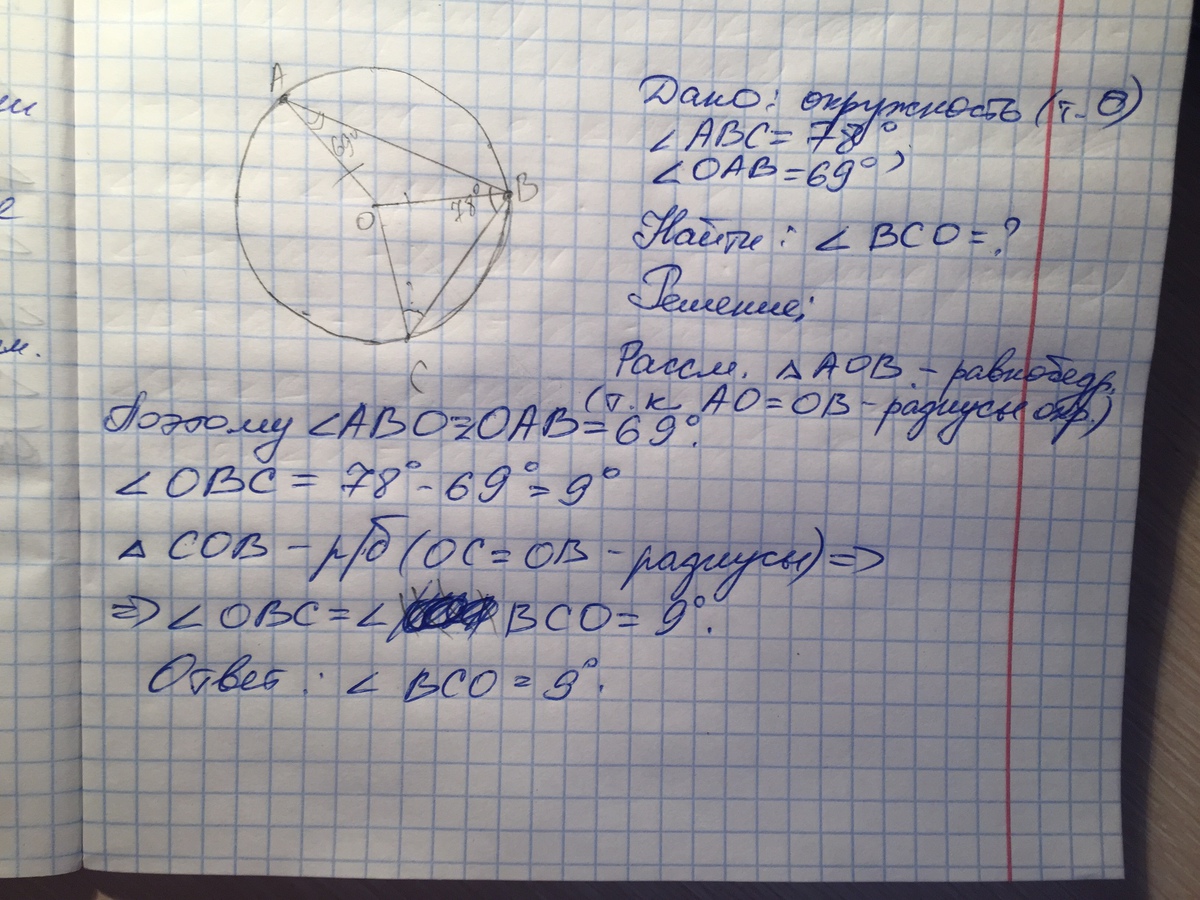 A
69°
B
78°
O
C
Дано: окружность (т. О)
∠ABC = 78°,
∠OAB = 69°
Найти: ∠BCO = ?
Решение:
Рассм. △AOB - равнобедр.
(т.к. AO = OB - радиусы окр.)
Поэтому ∠ABO = OAB = 69°.
∠OBC = 78° - 69° = 9°
△COB - р/б (OC = OB - радиусы) =>
=> ∠OBC = ∠BCO = 9°.
Ответ: ∠BCO = 9°.